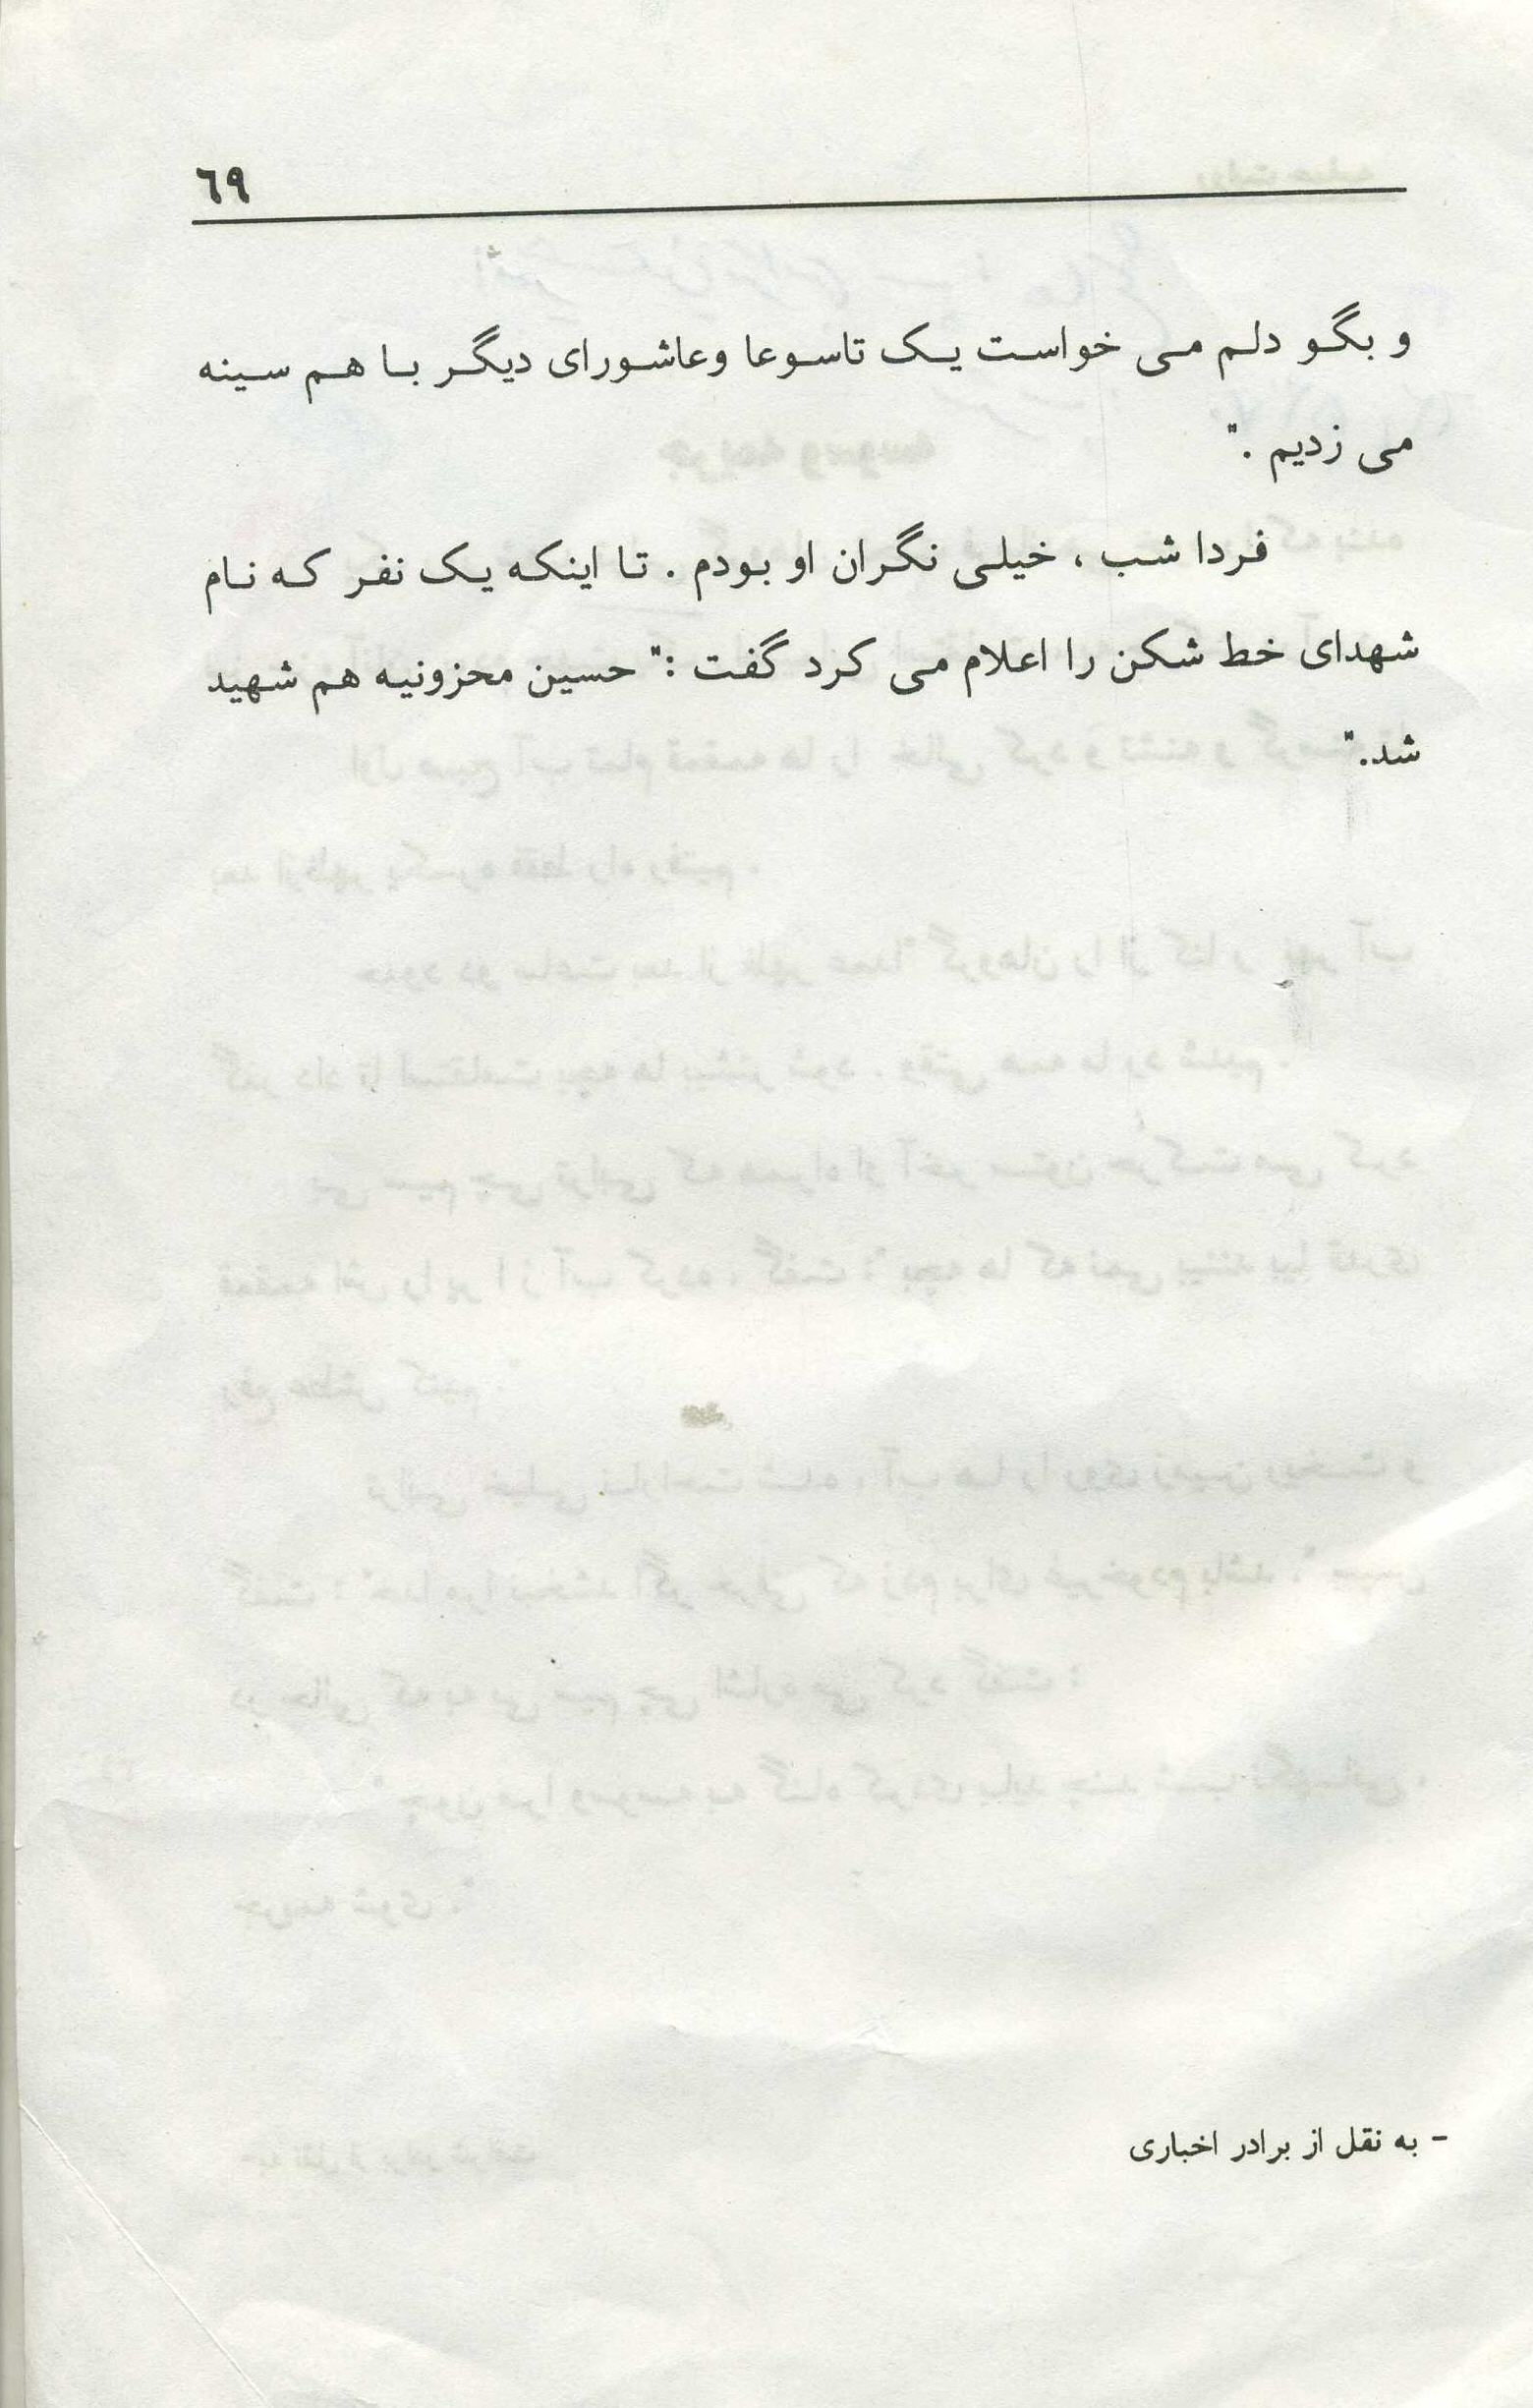 ٦٩
و بگو دلم می خواست یک تاسوعا وعاشورای دیگر با هم سینه
می زدیم ."
فردا شب ، خیلی نگران او بودم . تا اینکه یک نفر که نام
شهدای خط شکن را اعلام می کرد گفت :" حسین محزونیه هم شهید
شد."
- به نقل از برادر اخباری